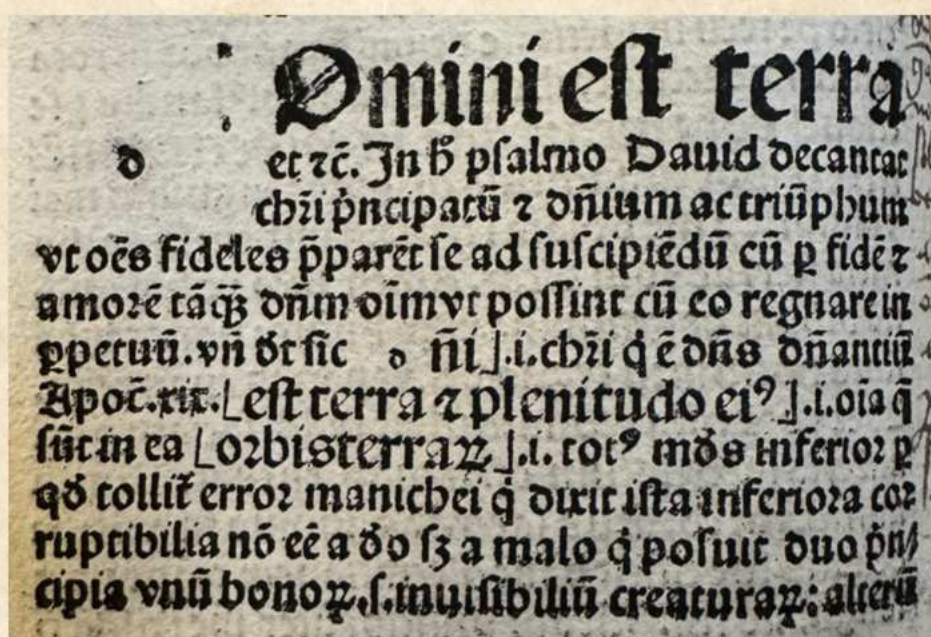 Dmini est terra
d et ⁊c̄. In h̄ psalmo Dauid decantat
chr̄i p̄ncipatū ⁊ dn̄ium ac triūphum
vt oēs fideles p̄parēt se ad suscipiēdū cū ꝑ fidē ⁊
amorē tāqȝ dn̄m oīm vt possint cū eo regnare in
ꝑpetuū. vn̄ dr̄ sic d n̄i ⌋.i. chr̄i q̇ ē dn̄s dn̄antiū
Apoc̄.xix.⌊est terra ⁊ plenitudo eiꝰ⌋.i. oīa q̄
sūt in ea ⌊orbis terraꝝ⌋.i. totꝰ mūds inferior ꝑ
qd̄ tollit̄ error manichei q̇ dixit ista inferiora cor
ruptibilia nō eē a dō sȝ a malo q̇ posuit duo p̄n/
cipia vnū bonoꝝ .s. inuisibiliū creaturaꝝ: alterū